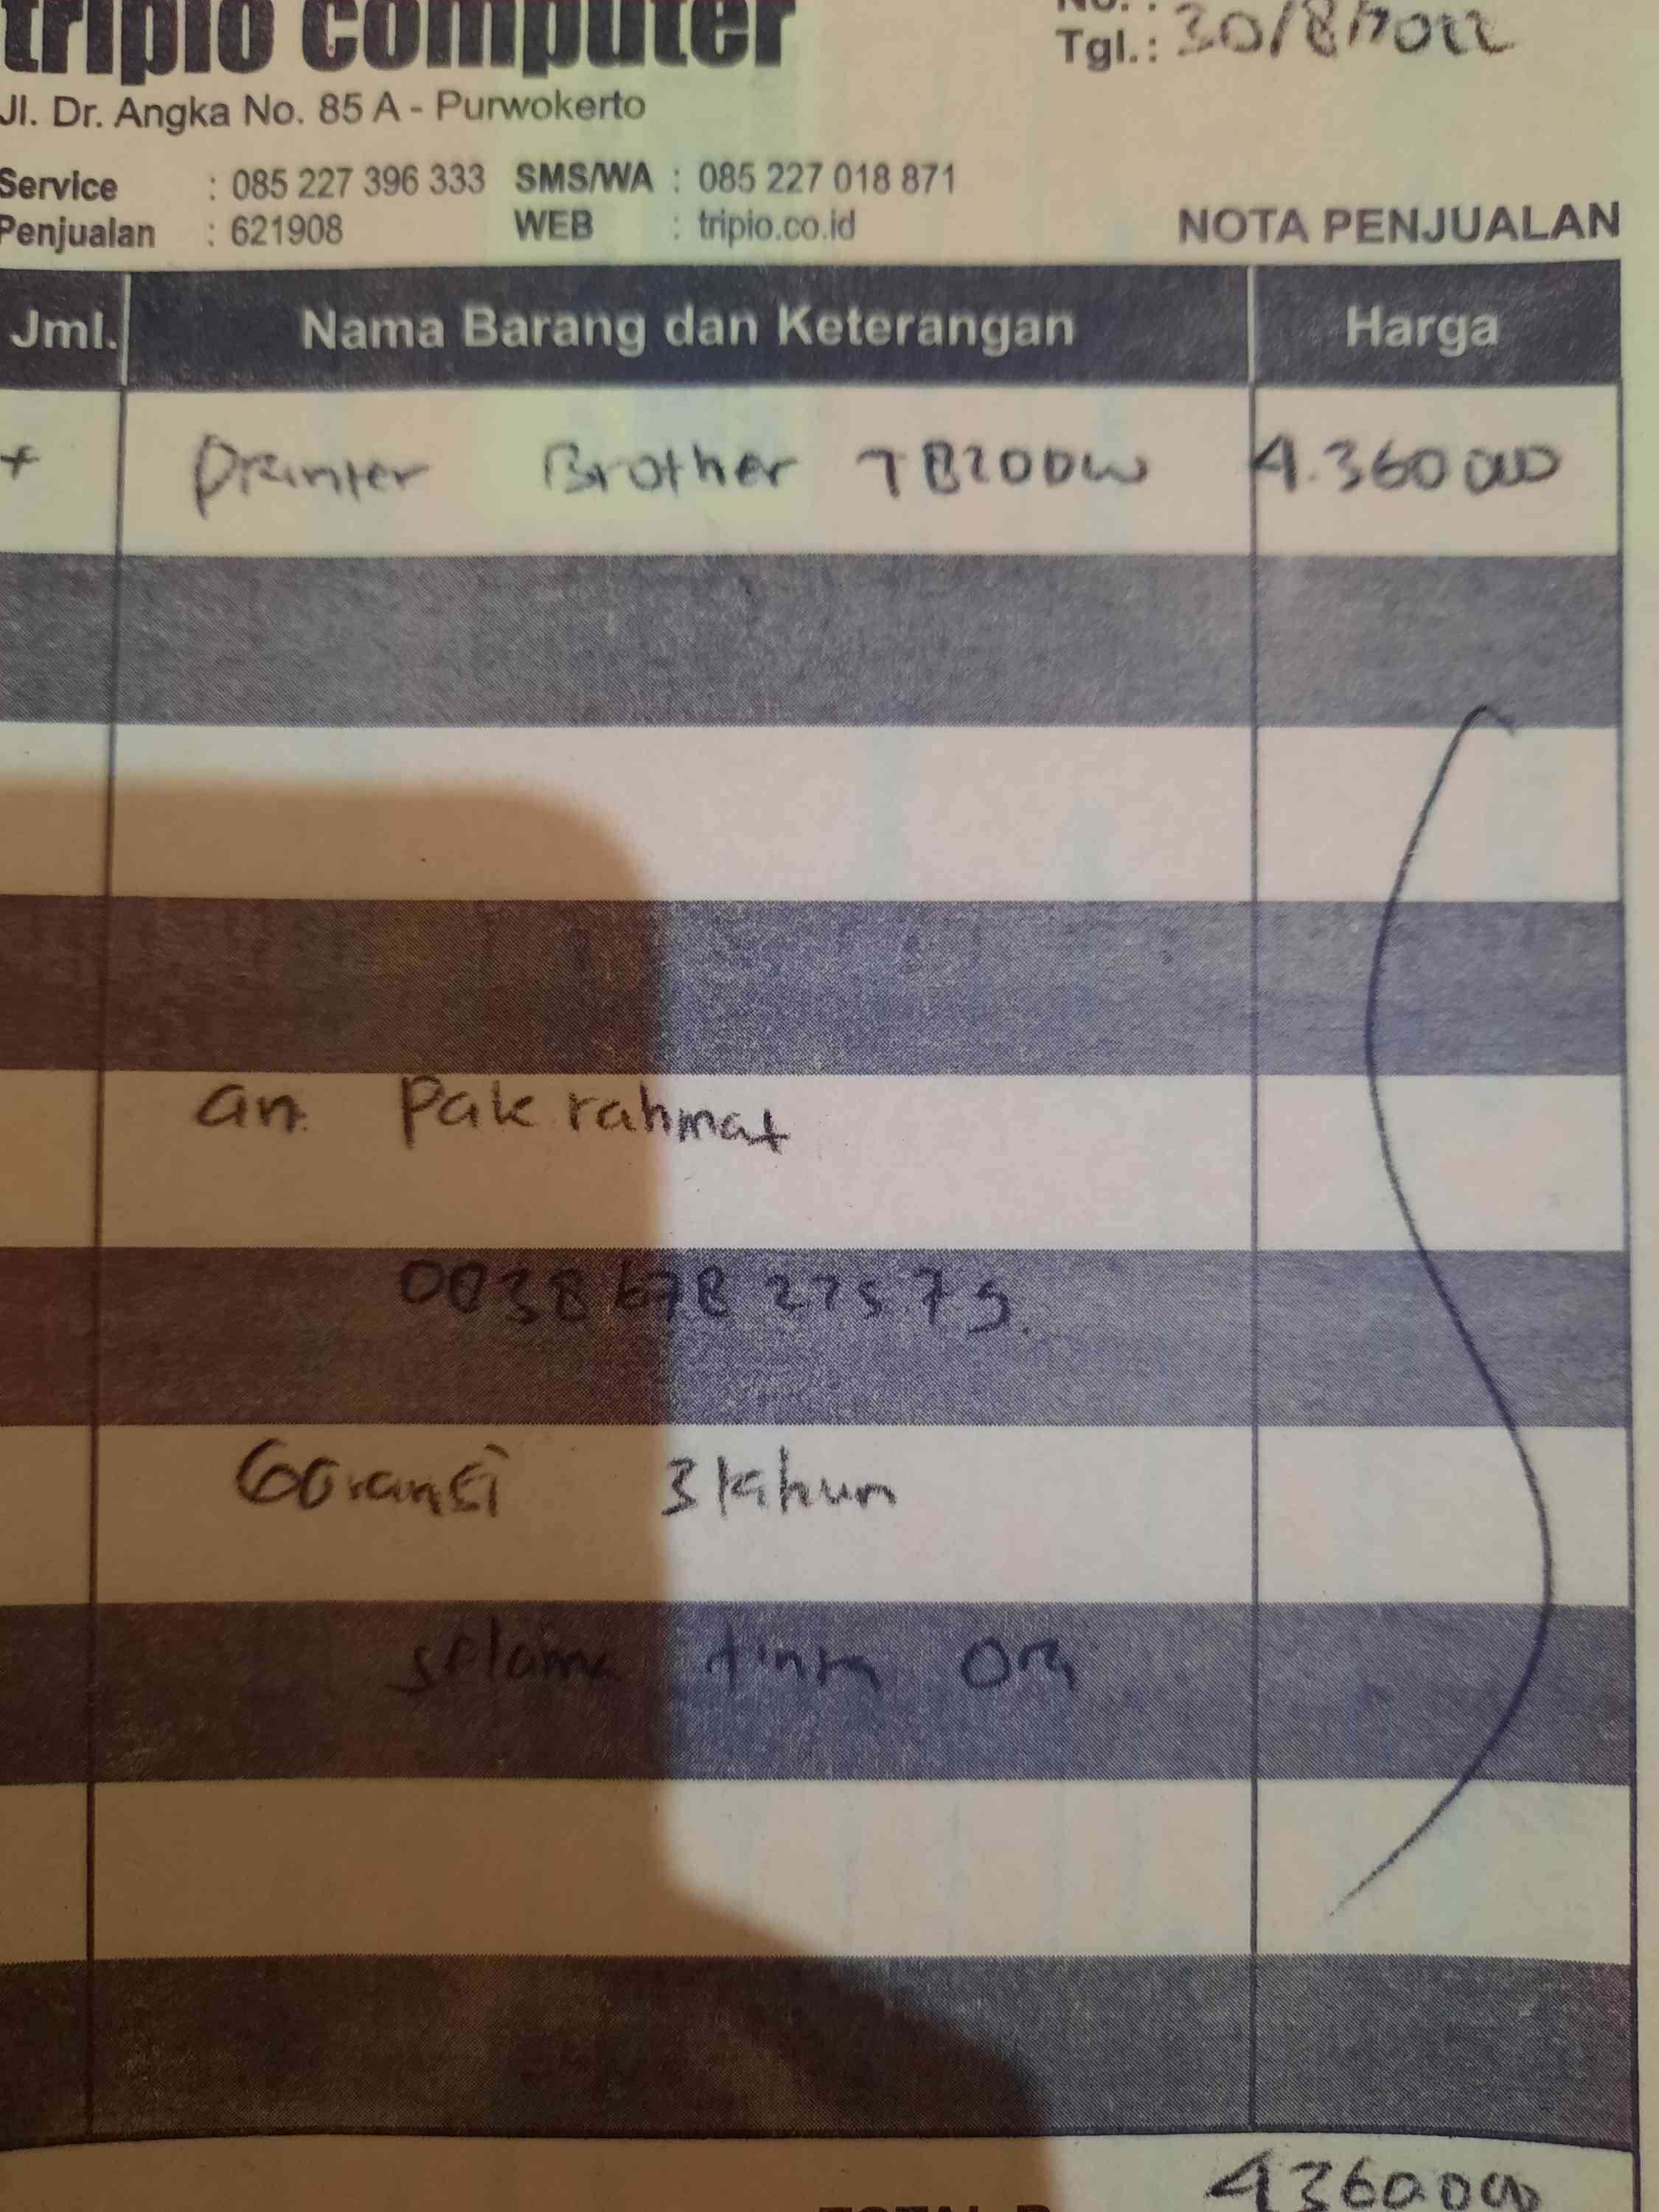 tripio computer
No. :
Tgl.: 30/8/2022
Jl. Dr. Angka No. 85 A - Purwokerto
Service : 085 227 396 333 SMS/WA : 085 227 018 871
Penjualan : 621908 WEB : tripio.co.id
NOTA PENJUALAN
Jml. Nama Barang dan Keterangan Harga
Printer Brother T8200W 4.360 000
an. Pak rahmat
0038 678 227575
Garansi 3 tahun
selama tinta Ori
4360.000
TOTAL R